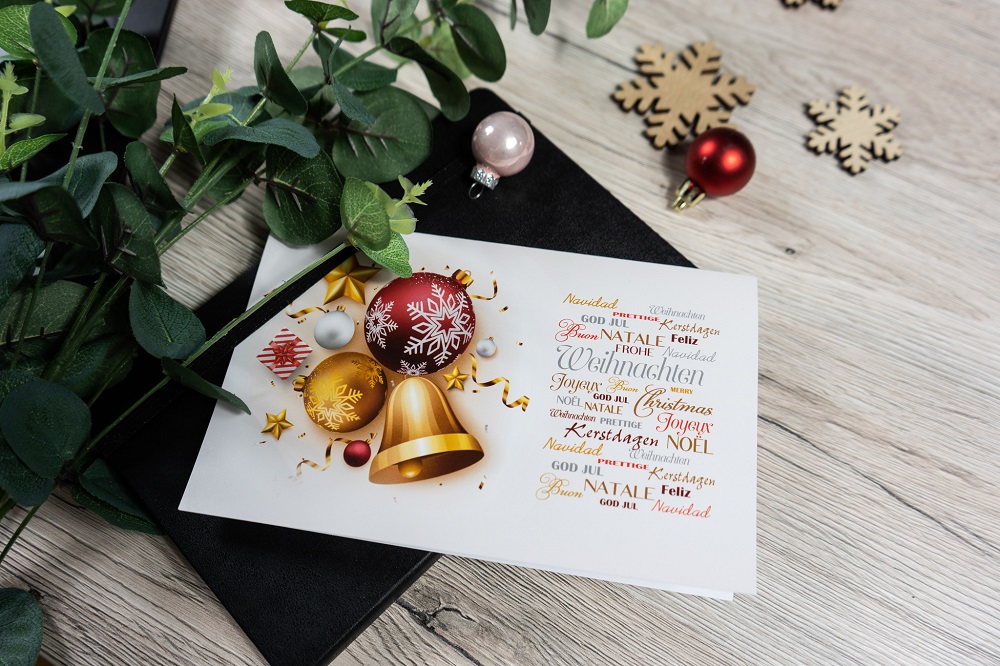 Navidad Weihnachten
GOD JUL PRETTIGE Kerstdagen
Buon NATALE Feliz
FROHE Navidad
Weihnachten
Joyeux Buon MERRY
GOD JUL Christmas
NOËL NATALE
Weihnachten PRETTIGE Joyeux
Kerstdagen NOËL
Navidad Weihnachten
GOD JUL PRETTIGE Kerstdagen
Buon NATALE Feliz
GOD JUL Navidad